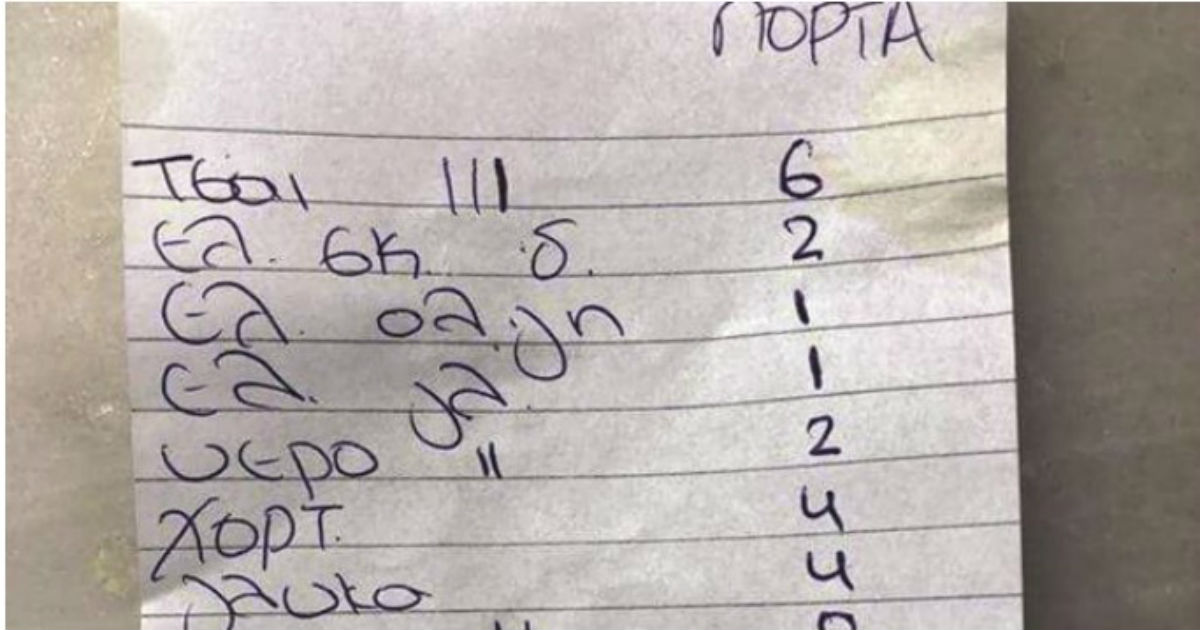 ΠΟΡΤΑ
Τσαι ||| 6
ελ. σκ. δ. 2
ελ. ολ. γπ 1
ελ. γλ. 1
υερο || 2
χορτ. 4
γλυκο 4